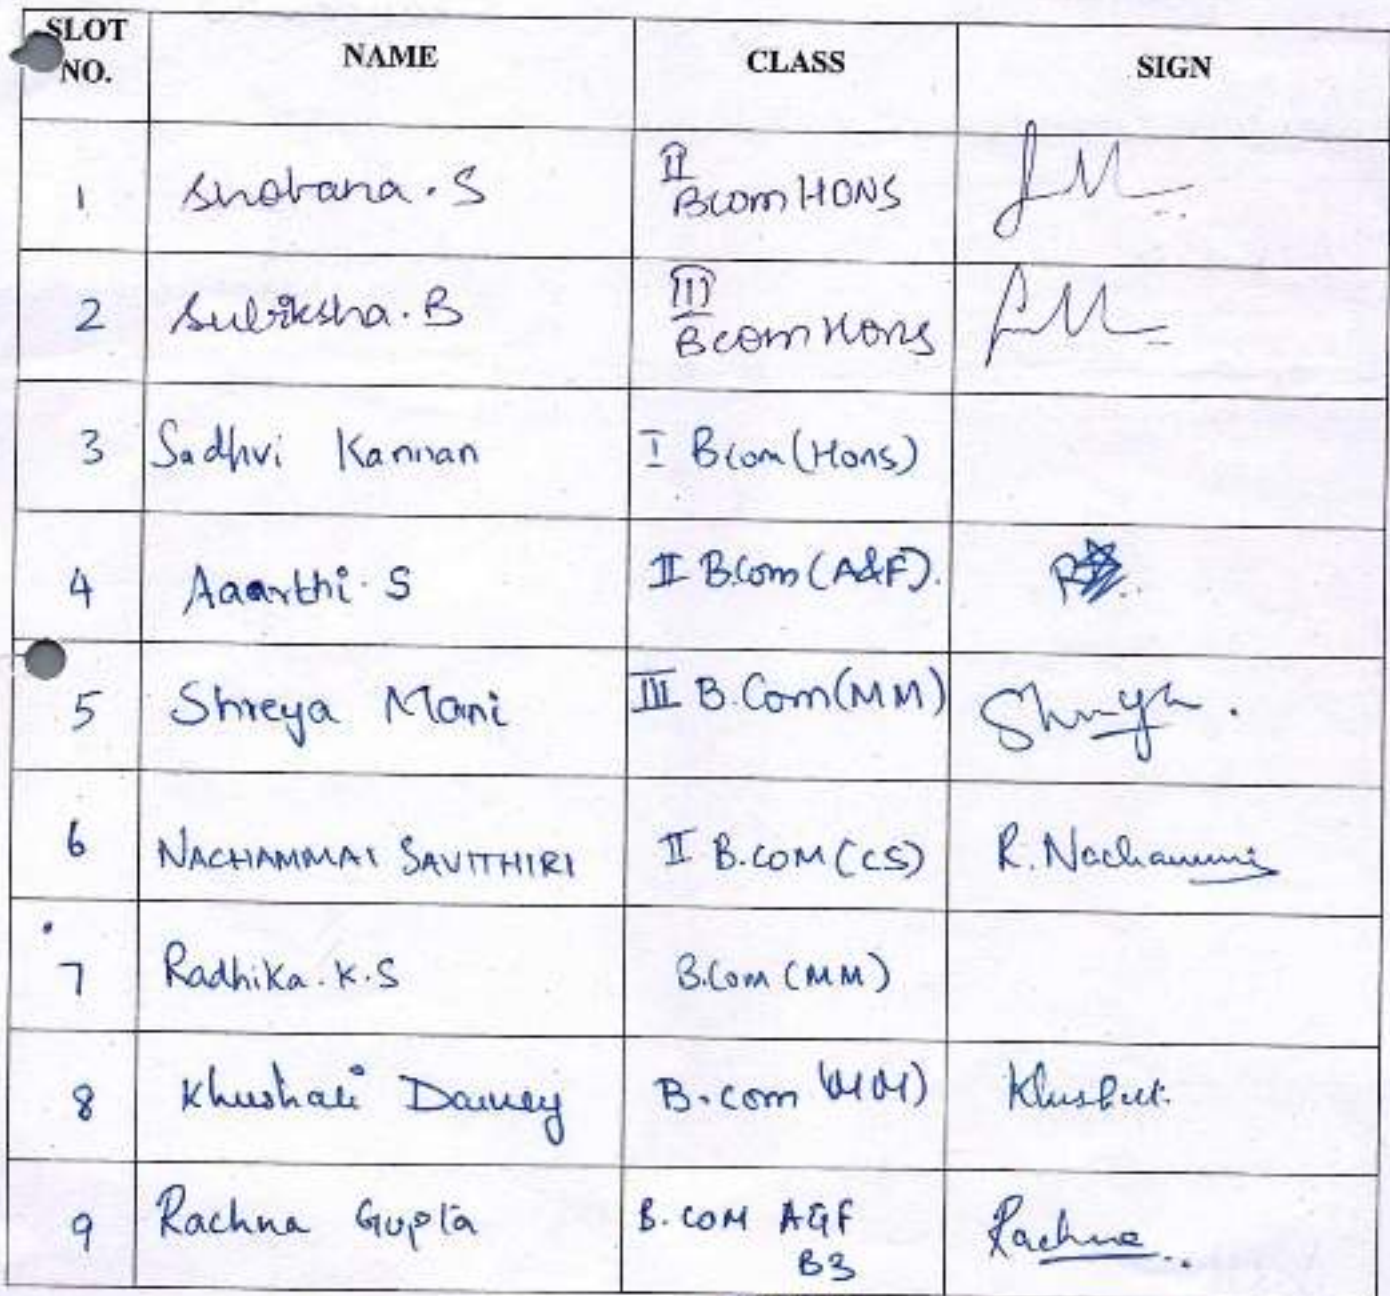 SLOT NO. NAME CLASS SIGN
1 Shobana . S II BCom HONS
2 Subiksha . B III BCom HONS
3 Sadhvi Kannan I BCom (Hons)
4 Aaarthi . S II B.Com (A&F).
5 Shreya Mani III B.Com (MM) Shreya .
6 NACHAMMAI SAVITHIRI II B.COM (CS) R. Nachammai
7 Radhika . K . S B.Com (MM)
8 Khushali B. com (MM) Khushali
9 Rachna Gupta B. COM A&F B3 Rachna